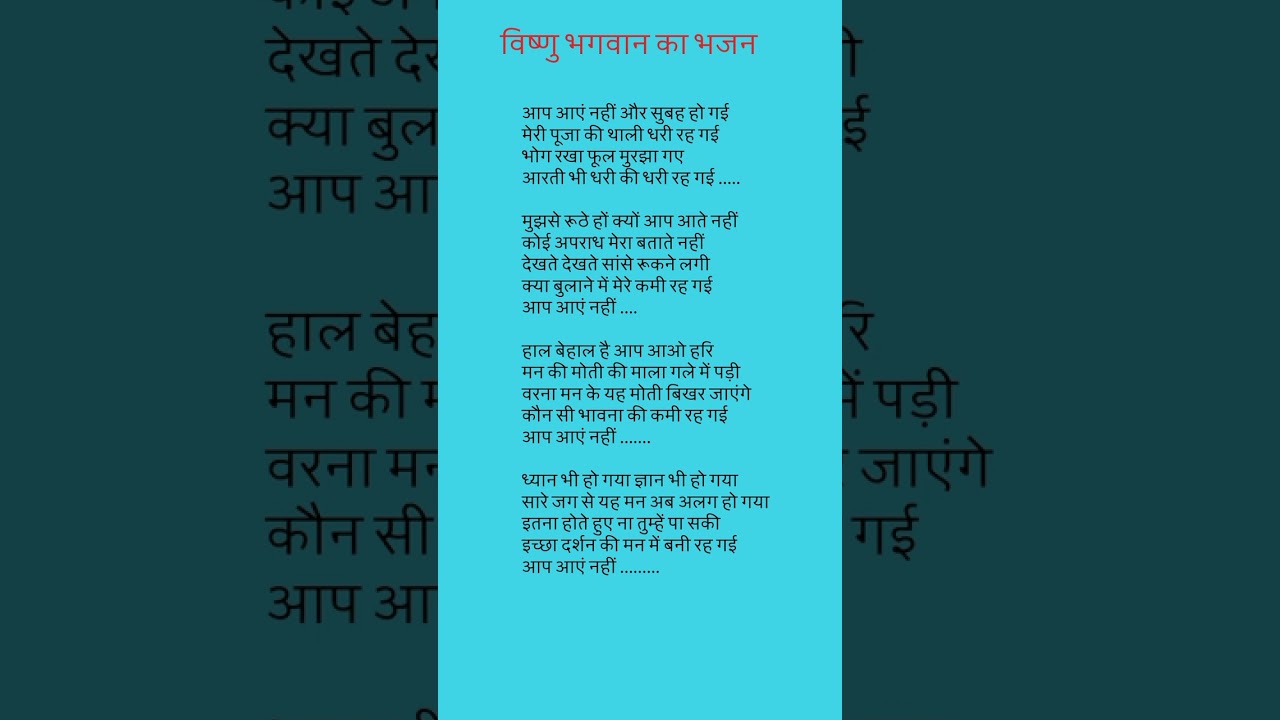 विष्णु भगवान का भजन
आप आएं नहीं और सुबह हो गई
मेरी पूजा की थाली धरी रह गई
भोग रखा फूल मुरझा गए
आरती भी धरी की धरी रह गई .....
मुझसे रूठे हों क्यों आप आते नहीं
कोई अपराध मेरा बताते नहीं
देखते देखते सांसे रूकने लगी
क्या बुलाने में मेरे कमी रह गई
आप आएं नहीं ....
हाल बेहाल है आप आओ हरि
मन की मोती की माला गले में पड़ी
वरना मन के यह मोती बिखर जाएंगे
कौन सी भावना की कमी रह गई
आप आएं नहीं .......
ध्यान भी हो गया ज्ञान भी हो गया
सारे जग से यह मन अब अलग हो गया
इतना होते हुए ना तुम्हें पा सकी
इच्छा दर्शन की मन में बनी रह गई
आप आएं नहीं .........